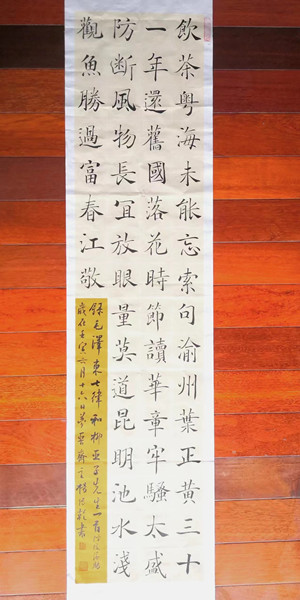 飲茶粵海未能忘索句渝州葉正黃三十
一年還舊國落花時節讀華章牢騷太盛
防断風物長宜放眼量莫道昆明池水淺
觀魚勝過富春江敬
錄毛澤東七律和柳亞子先生一首防
歲在壬寅六月十六日夢亞齋主楊書